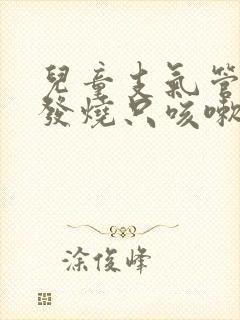 兒童支氣管
發燒只咳嗽
涂俊峰